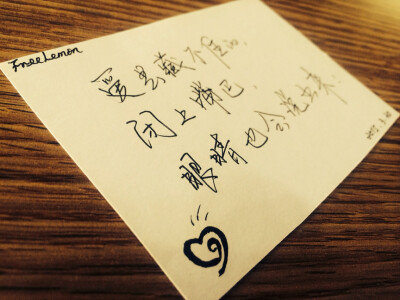 FreeLemon
爱是藏不住的
闭上嘴巴，
眼睛也会说出来！